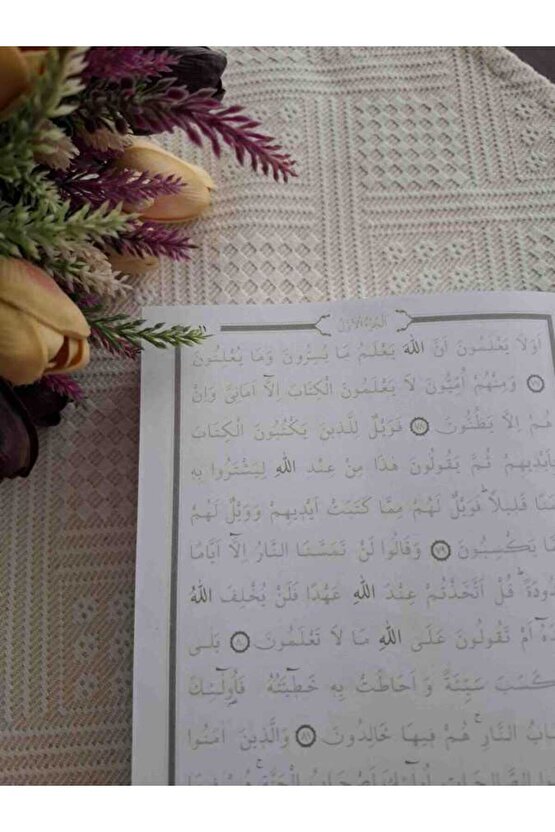 الجزء الاول
اَوَلَا يَعْلَمُونَ اَنَّ اللّٰهَ يَعْلَمُ مَا يُسِرُّونَ وَمَا يُعْلِنُونَ
﴿٧٧﴾ وَمِنْهُمْ اُمِّيُّونَ لَا يَعْلَمُونَ الْكِتَابَ اِلَّٓا اَمَانِيَّ وَاِنْ
هُمْ اِلَّا يَظُنُّونَ ﴿٧٨﴾ فَوَيْلٌ لِلَّذِينَ يَكْتُبُونَ الْكِتَابَ
بِاَيْدِيهِمْ ثُمَّ يَقُولُونَ هٰذَا مِنْ عِنْدِ اللّٰهِ لِيَشْتَرُوا بِهِ
قَلِيلًاۜ فَوَيْلٌ لَهُمْ مِمَّا كَتَبَتْ اَيْدِيهِمْ وَوَيْلٌ لَهُمْ
يَكْسِبُونَ ﴿٧٩﴾ وَقَالُوا لَنْ تَمَسَّنَا النَّارُ اِلَّٓا اَيَّامًا
قُلْ اَتَّخَذْتُمْ عِنْدَ اللّٰهِ عَهْدًا فَلَنْ يُخْلِفَ اللّٰهُ
اَمْ تَقُولُونَ عَلَى اللّٰهِ مَا لَا تَعْلَمُونَ ﴿٨٠﴾ بَلٰى
كَسَبَ سَيِّئَةً وَاَحَاطَتْ بِهِ خَطِٓيـَٔتُهُ فَاُو۬لٰٓئِكَ
النَّارِۚ هُمْ فِيهَا خَالِدُونَ ﴿٨١﴾ وَالَّذِينَ اٰمَنُوا
الصَّالِحَاتِ اُو۬لٰٓئِكَ اَصْحَابُ الْجَنَّةِۚ هُمْ فِيهَا